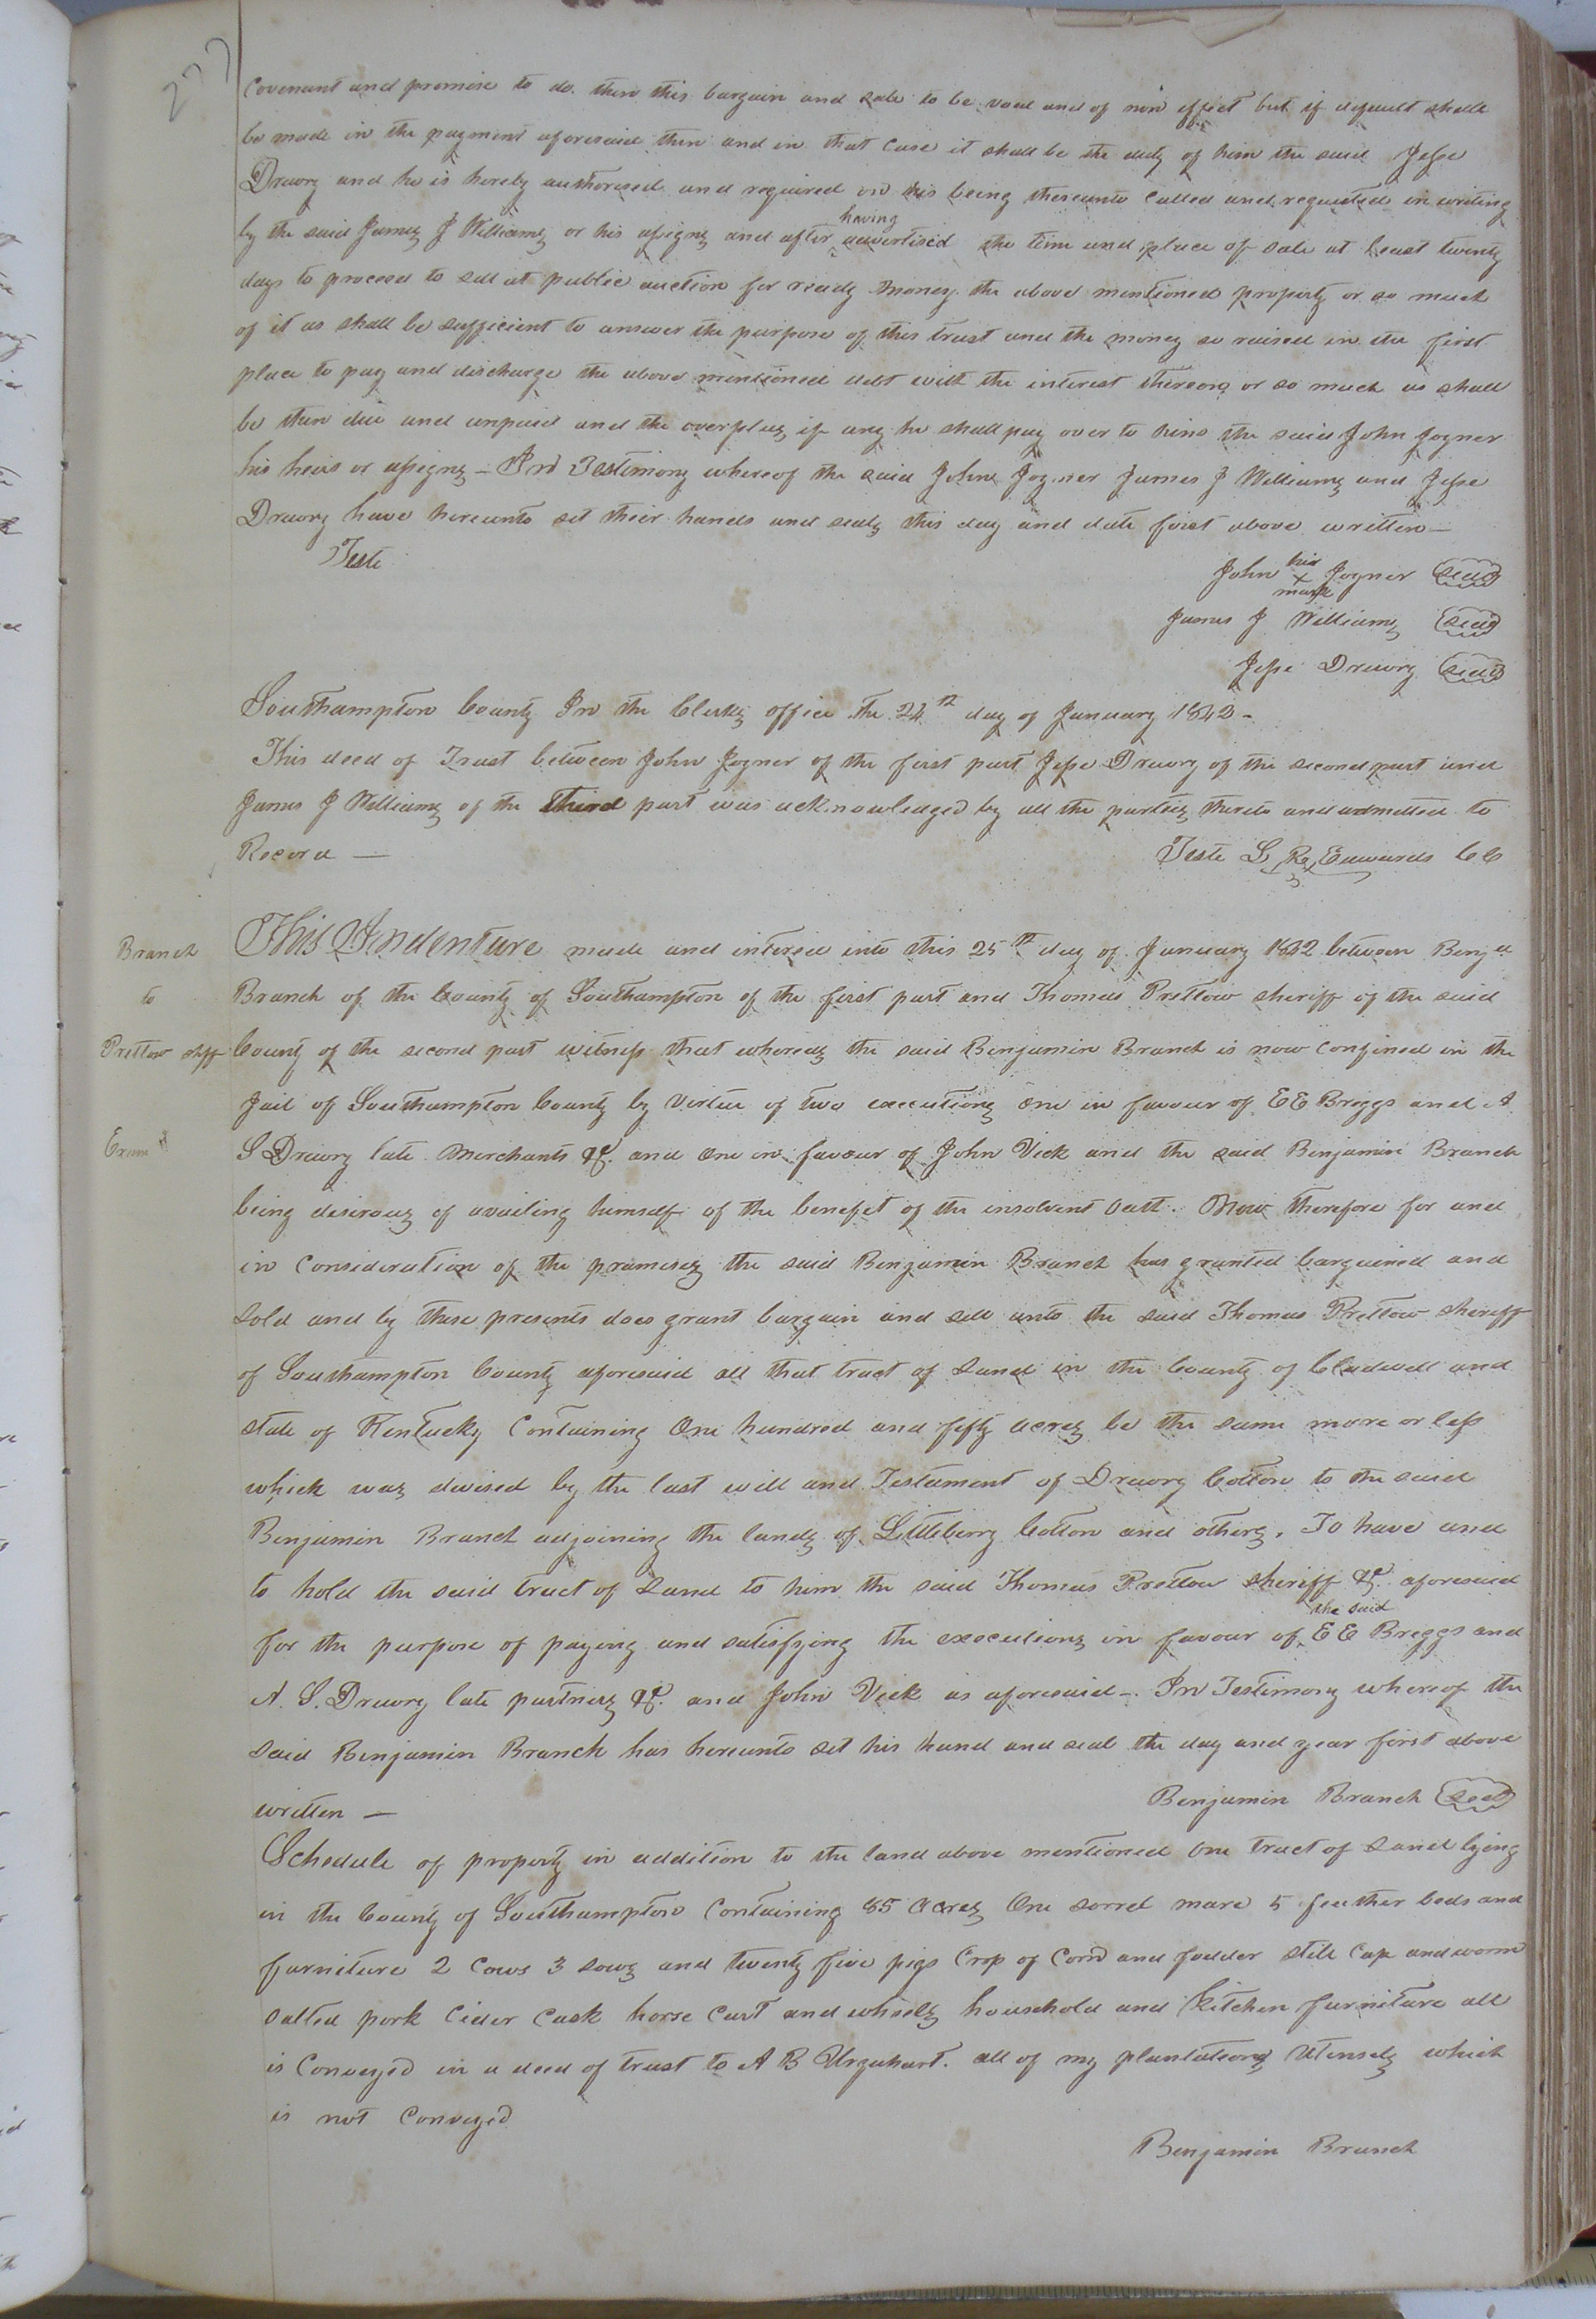 277
Covenant and promise to do. then this bargain and sale to be void and of non effect but if default shall
be made in the payment aforesaid then and in that case it shall be the duty of him the said Jesse
Drewry and he is hereby authorised and required on his being thereunto called and requested in writing
by the said James J Williams or his assigns and after having advertised the time and place of sale at least twenty
days to proceed to sell at public auction for ready money the above mentioned property or so much
of it as shall be sufficient to answer the purpose of this trust and the money so raised in the first
place to pay and discharge the above mentioned debt with the interest thereon or so much as shall
be then due and unpaid and the overplus if any he shall pay over to him the said John Joyner
his heirs or assigns – In Testimony whereof the said John Joyner James J Williams and Jesse
Drewry have hereunto set their hands and seals this day and date first above written –
Teste
John his x mark Joyner seal
James J Williams seal
Jesse Drewry seal
Southampton County In the Clerks office the 24th day of January 1842 –
This deed of Trust between John Joyner of the first part Jesse Drewry of the second part and
James J Williams of the third part was acknowledged by all the parties thereto and admitted to
Record — Teste L R Edwards CC
Branch
to
Pretlow shff
Exam d
This Indenture made and entered into this 25th day of January 1842 between Benja
Branch of the County of Southampton of the first part and Thomas Pretlow sheriff of the said
County of the second part witness that whereas the said Benjamin Branch is now confined in the
Jail of Southampton County by virtue of two executions one in favour of E E Briggs and A
S Drewry late Merchants &c. and one in favour of John Vick and the said Benjamin Branch
being desirous of availing himself of the benefet of the insolvent oath. Now therefore for and
in consideration of the premises the said Benjamin Branch has granted bargained and
sold and by these presents does grant bargain and sell unto the said Thomas Pretlow sheriff
of Southampton County aforesaid all that tract of Land in the County of Cladwell and
state of Kentucky Containing One hundred and fifty acres be the same more or less
which was devised by the last will and Testament of Drewry Cotton to the said
Benjamin Branch adjoining the lands of Littleberry Cotton and others. To have and
to hold the said tract of Land to him the said Thomas Pretlow sheriff &c. aforesaid
for the purpose of paying and satisfying the executions in favour of the said E E Briggs and
A. S. Drewry late partners &c. and John Vick as aforesaid –. In Testimony whereof the
said Benjamin Branch has hereunto set his hand and seal the day and year first above
written — Benjamin Branch seal
Schedule of property in addition to the land above mentioned one tract of Land lying
in the County of Southampton Containing 85 acres One sorrel mare 5 feather beds and
furniture 2 Cows 3 sows and twenty five pigs Crop of Corn and fodder still Cap and worm
salted pork Cider Cask horse Cart and wheels household and Kitchen furniture all
is Conveyed in a deed of trust to A B Urquhart. all of my plantations Utensels which
is not Conveyed
Benjamin Branch